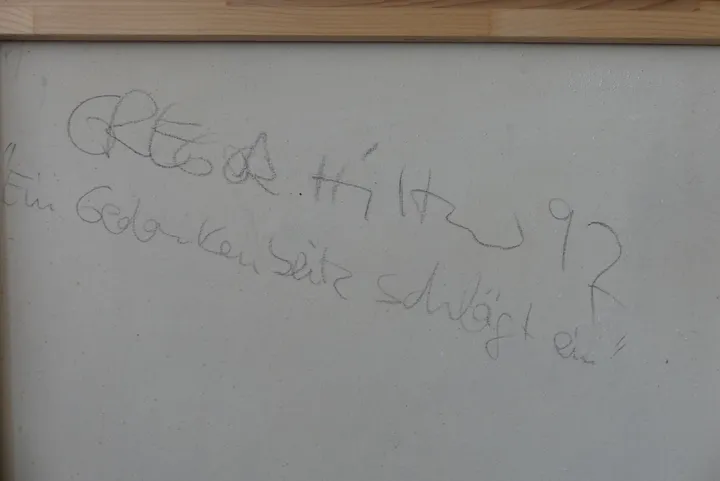 GREGOR Hiltner 92
"Ein Gedankenblitz schlägt ein"